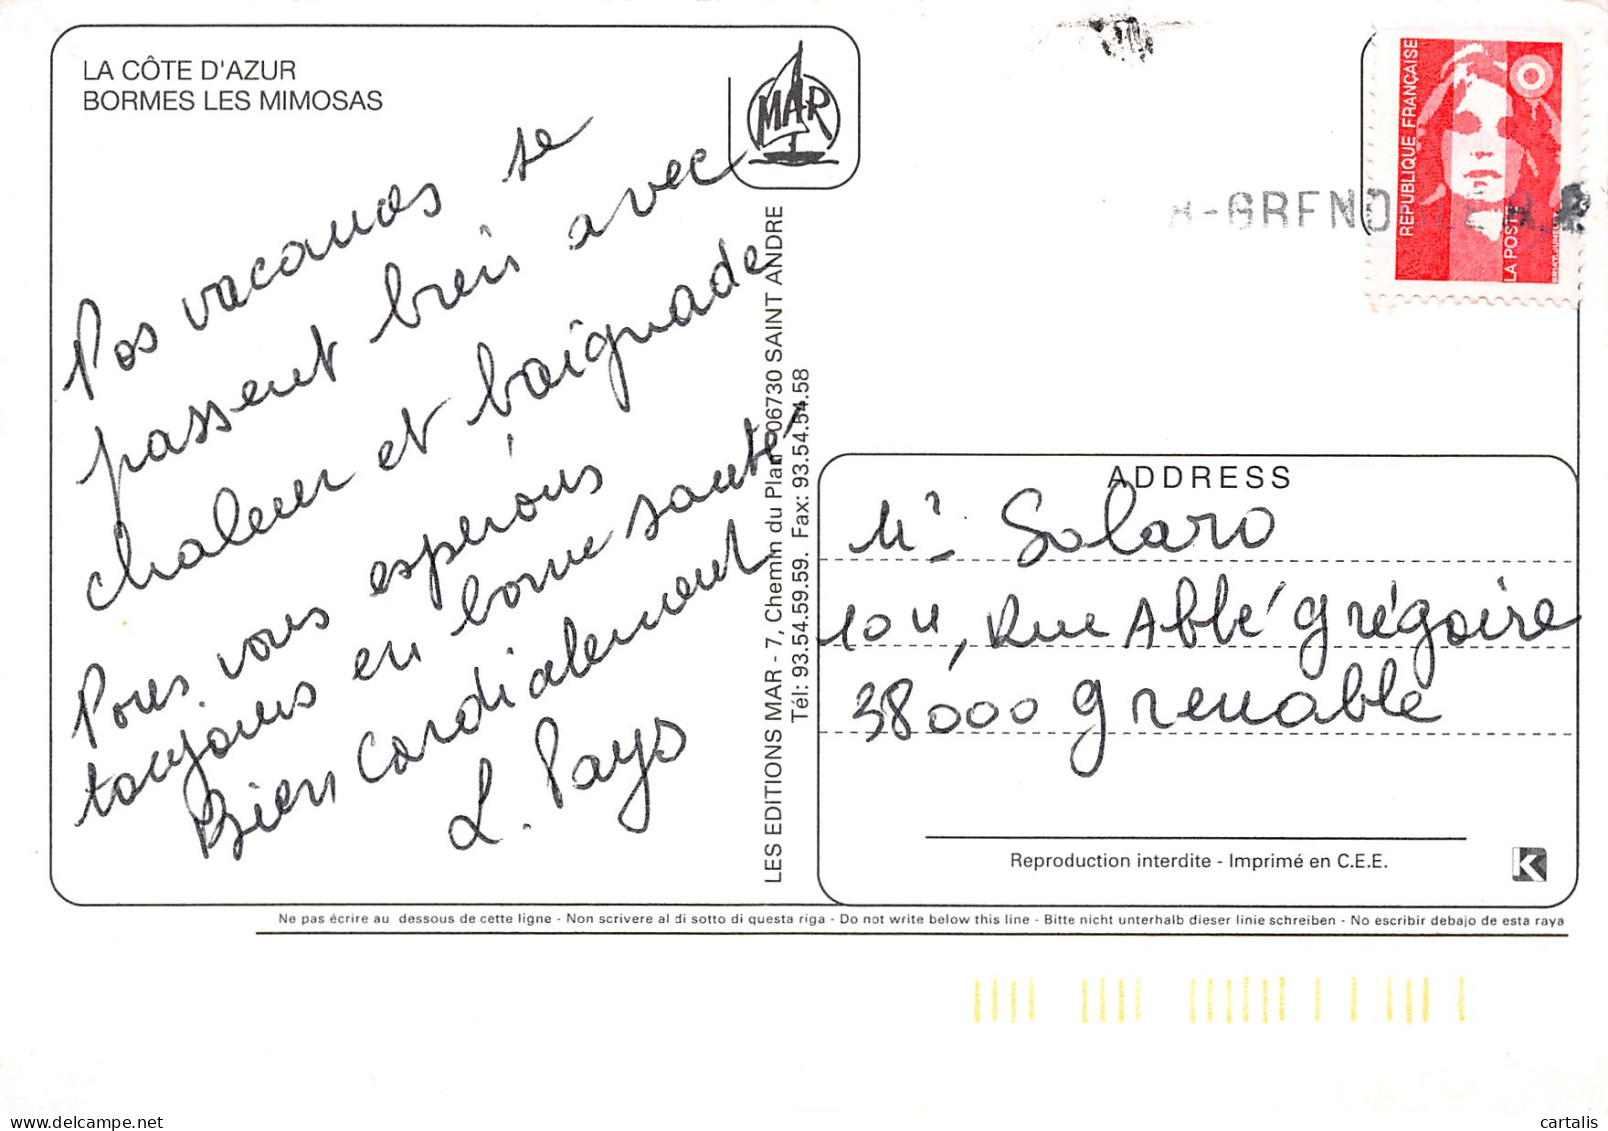 LA CÔTE D'AZUR
BORMES LES MIMOSAS
MAR
Nos vacances se
passent bien avec
chaleur et baignade
Nous vous espérons
toujours en bonne santé,
Bien cordialement
L. Pays
LES EDITIONS MAR - 7, Chemin du Plan - 06730 SAINT ANDRE
Tél: 93.54.59.59. Fax: 93.54.54.58
REPUBLIQUE FRANÇAISE
LA POSTE
ADDRESS
Mr Solaro
10 u, Rue Abbé Grégoire
38000 Grenoble
Reproduction interdite - Imprimé en C.E.E.
K
Ne pas écrire au dessous de cette ligne - Non scrivere al di sotto di questa riga - Do not write below this line - Bitte nicht unterhalb dieser linie schreiben - No escribir debajo de esta raya
delcampe.net
cartalis